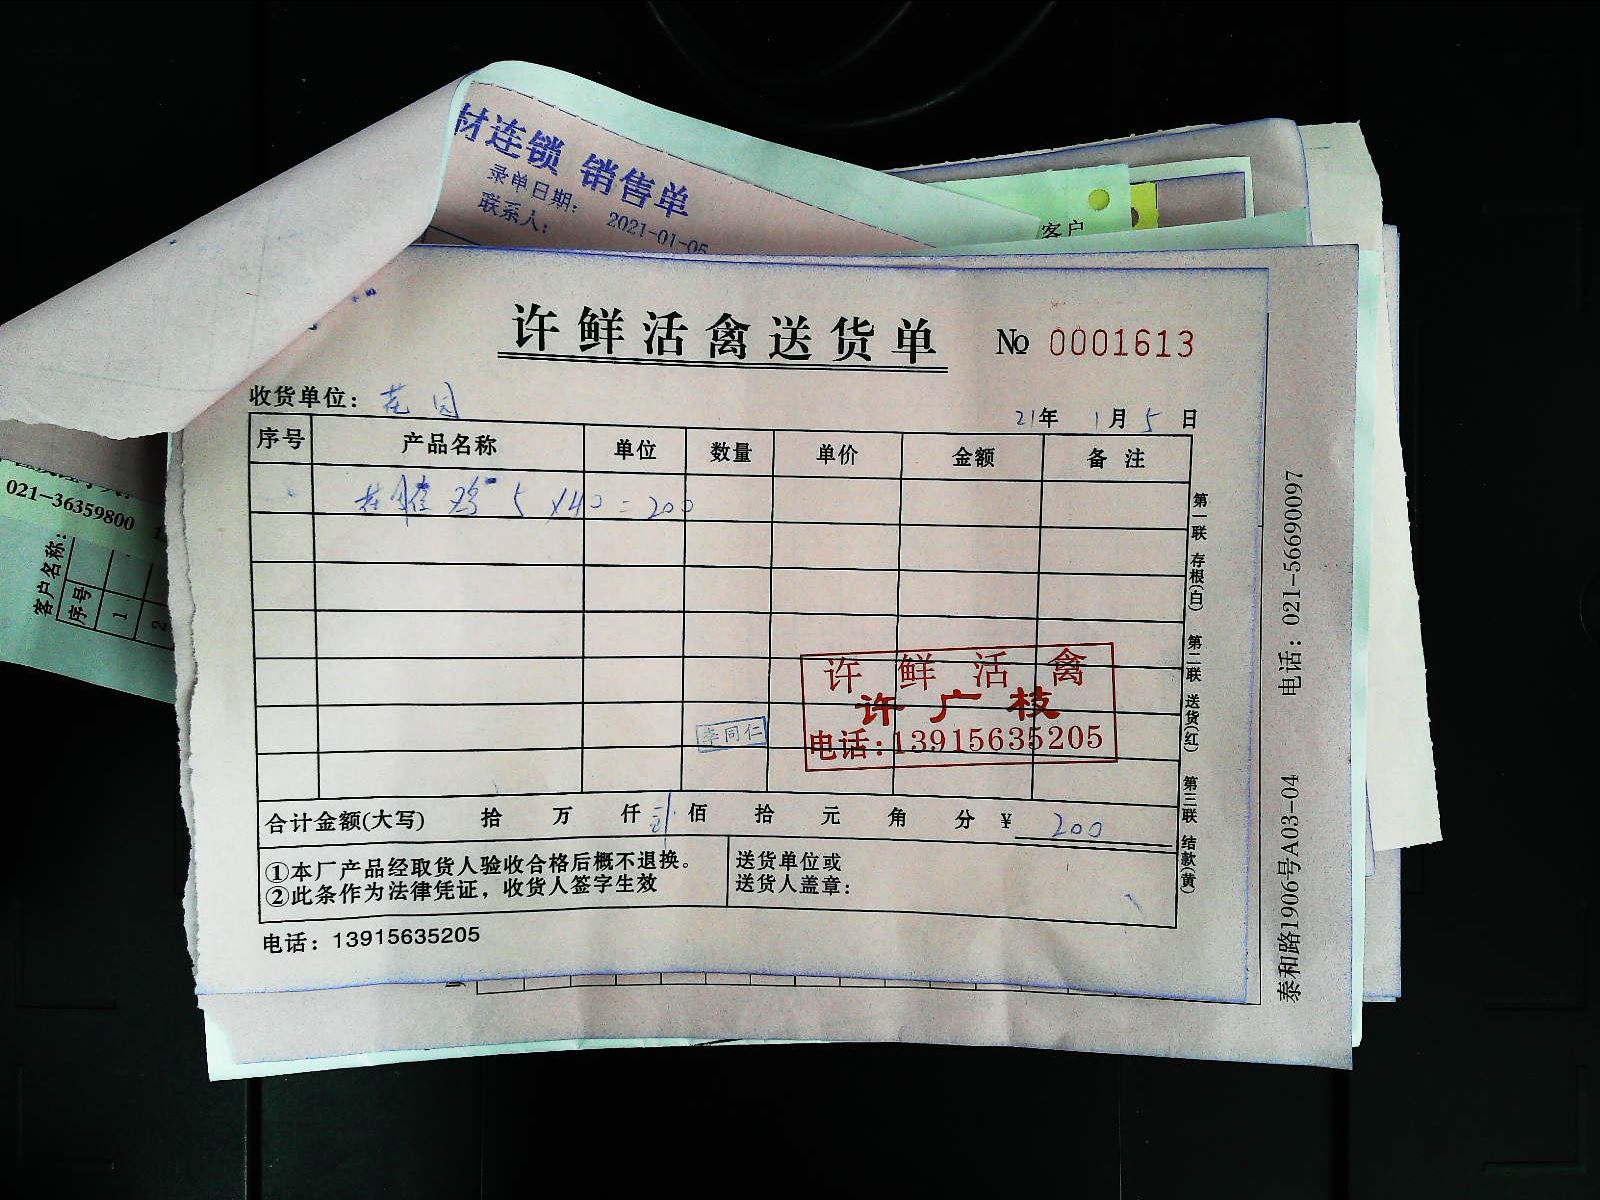 材连锁 销售单
录单日期： 2021-01-05
联系人：
客户
许鲜活禽送货单
№ 0001613
收货单位： 花园
21年 1月 5日
序号 产品名称 单位 数量 单价 金额 备 注
鸡 5 X40=200
第一联 存根(白) 第二联 送货(红) 第三联 结款(黄)
许 鲜 活 禽
许广枝
电话:13915635205
李同仁
合计金额(大写) 拾 万 仟 佰 拾 元 角 分 ¥ 200
①本厂产品经取货人验收合格后概不退换。
②此条作为法律凭证，收货人签字生效
送货单位或
送货人盖章：
电话：13915635205
泰和路1906号A03-04 电话：021-56690097
021-36359800
客户名称：
序号
1
2